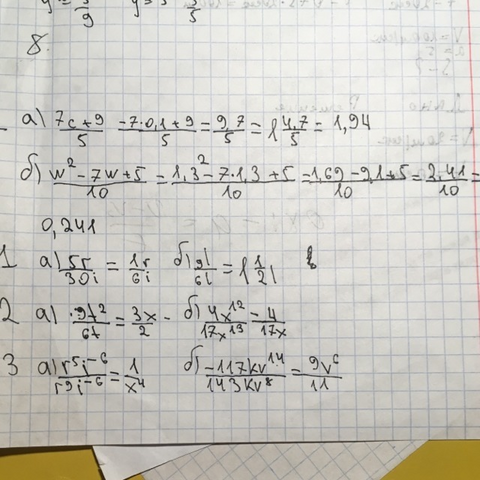 8.
а) 7c+9/5 = 7·0,1+9/5 = 9,7/5 = 1 4,7/5 = 1,94
б) w²-7w+5/10 = 1,3²-7·1,3+5/10 = 1,69-9,1+5/10 = 2,41/10 =
0,241
1 а) 5r/30i = 1r/6i б) gl/6l = 1 1/2l
2 а) 9t²/6t = 3x/2 - б) 4x¹²/17x¹³ = 4/17x
3 а) r⁵i⁻⁶/r⁹i⁻⁶ = 1/x⁴ б) -117kv¹⁴/143kv⁸ = 9v⁶/11